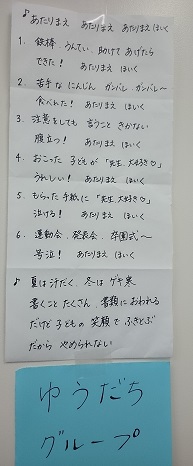 ♪ あたりまえ あたりまえ あたりまえ ほいく
1. 鉄棒、うんてい、助けてあげたら
できた! あたりまえ ほいく
2. 苦手な にんじん ガンバレ ガンバレ〜
食べれた! あたりまえ ほいく
3. 注意をしても 言うこと きかない
腹立つ! あたりまえ ほいく
4. おこった 子どもが「先生 大好き♡」
うれしい! あたりまえ ほいく
5. もらった 手紙に「先生 大好き♡」
泣ける! あたりまえ ほいく
6. 運動会、発表会、卒園式〜
号泣! あたりまえ ほいく
♪ 夏は汗だく、冬は ゲキ寒
書くこと たくさん、書類に おわれる
だけど 子どもの 笑顔で ふきとぶ
だから やめられない
ゆうだち
グループ